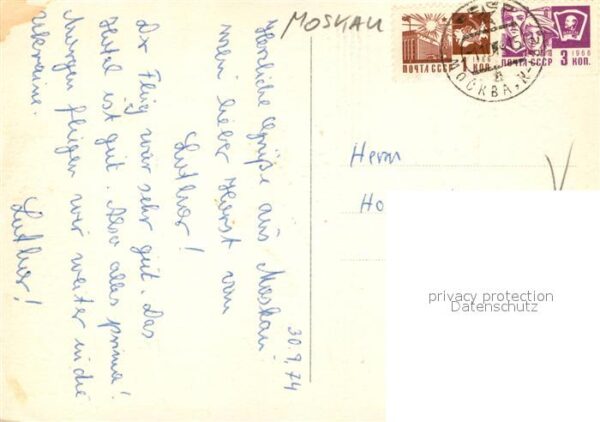 MOSKAU
30.9.74
Herzliche Grüße aus Moskau!
mein lieber Horst von
Luthar!
Der Flug war sehr gut. Das
Hotel ist gut. Also alles prima!
Morgen fliegen wir weiter in die
Ukraine.
Luthar!
1966
ПОЧТА СССР 1 КОП.
1966
ПОЧТА СССР 3 КОП.
МОСКВА
Herrn
Ho
privacy protection
Datenschutz